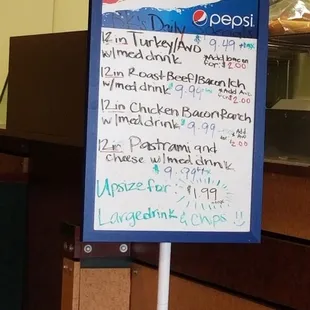 pepsi
Daily
12 in Turkey/Avo $9.49 +tax
w/med drink *Add bacon
for $2.00
12 in Roast Beef/Bacon/ch
w/med drink $9.99 *Add
$2.00
12 in Chicken Bacon Ranch
w/med drink $9.99 *Add
$2.00
12 in Pastrami and
cheese w/med drink
$9.99
Upsize for $1.99
Large drink & chips !!